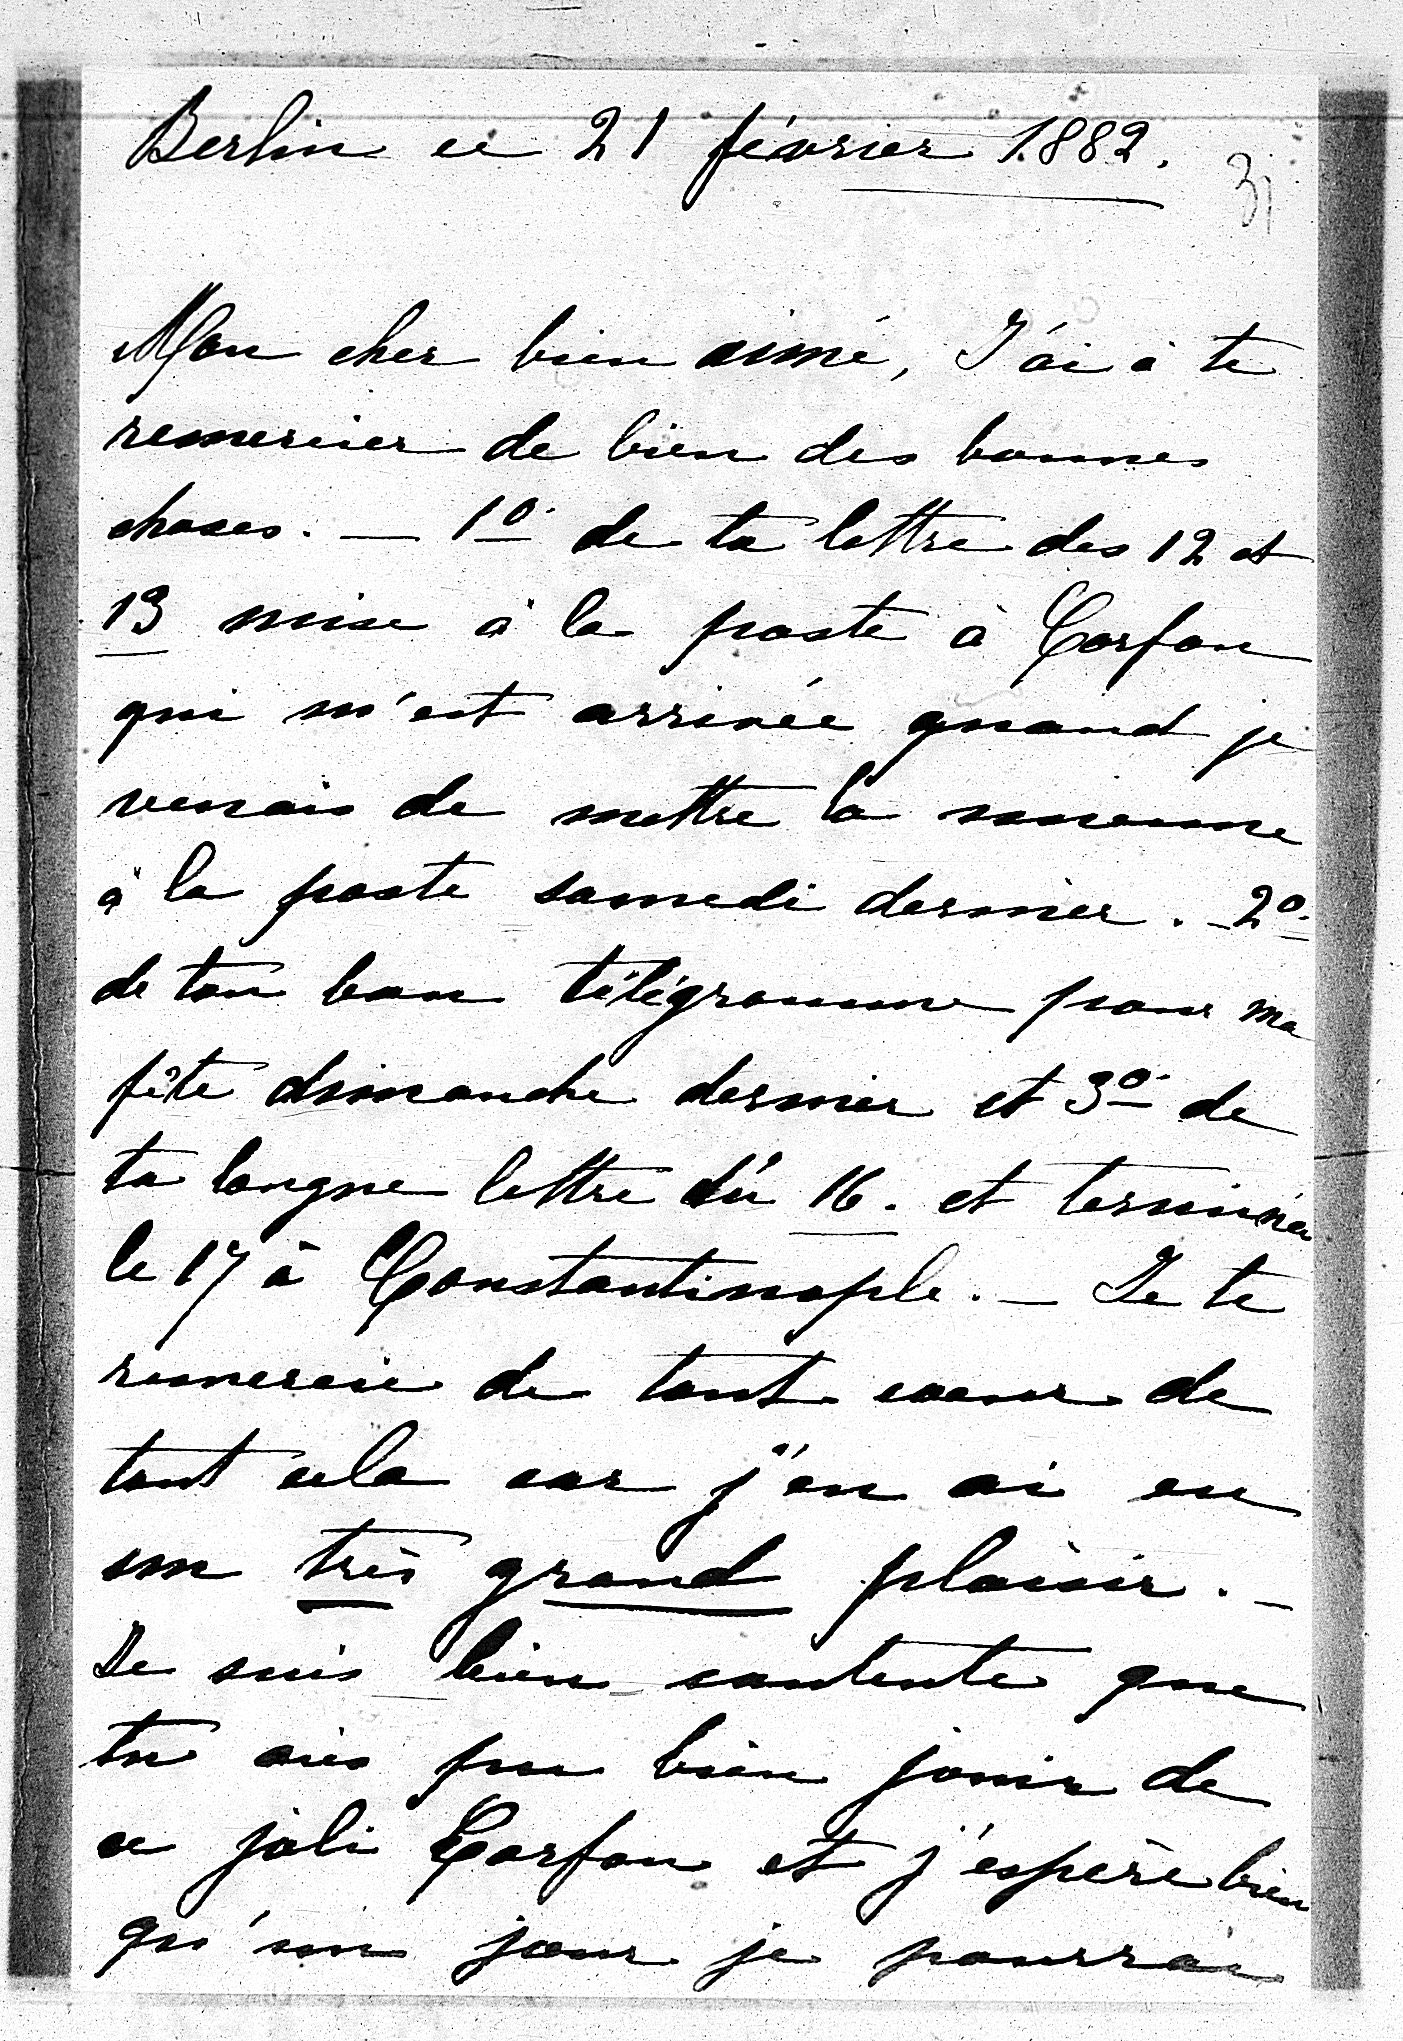 Berlin ce 21 février 1882.
31
Mon cher bien aimé, J'ai à te
remercier de bien des bonnes
choses. — 1º de ta lettre des 12 et
13 mise à la poste à Corfou
qui m'est arrivée quand je
venais de mettre la mienne
à la poste samedi dernier. – 2º
de ton bon télégramme pour ma
fête dimanche dernier et 3º de
ta longue lettre du 16. et terminée
le 17 à Constantinople. — Je te
remercie de tout coeur de
tout cela car j'en ai eu
un très grand plaisir. —
Je suis bien contente que
tu aies pu bien jouir de
ce joli Corfou et j'espère bien
qu'un jour je pourrai